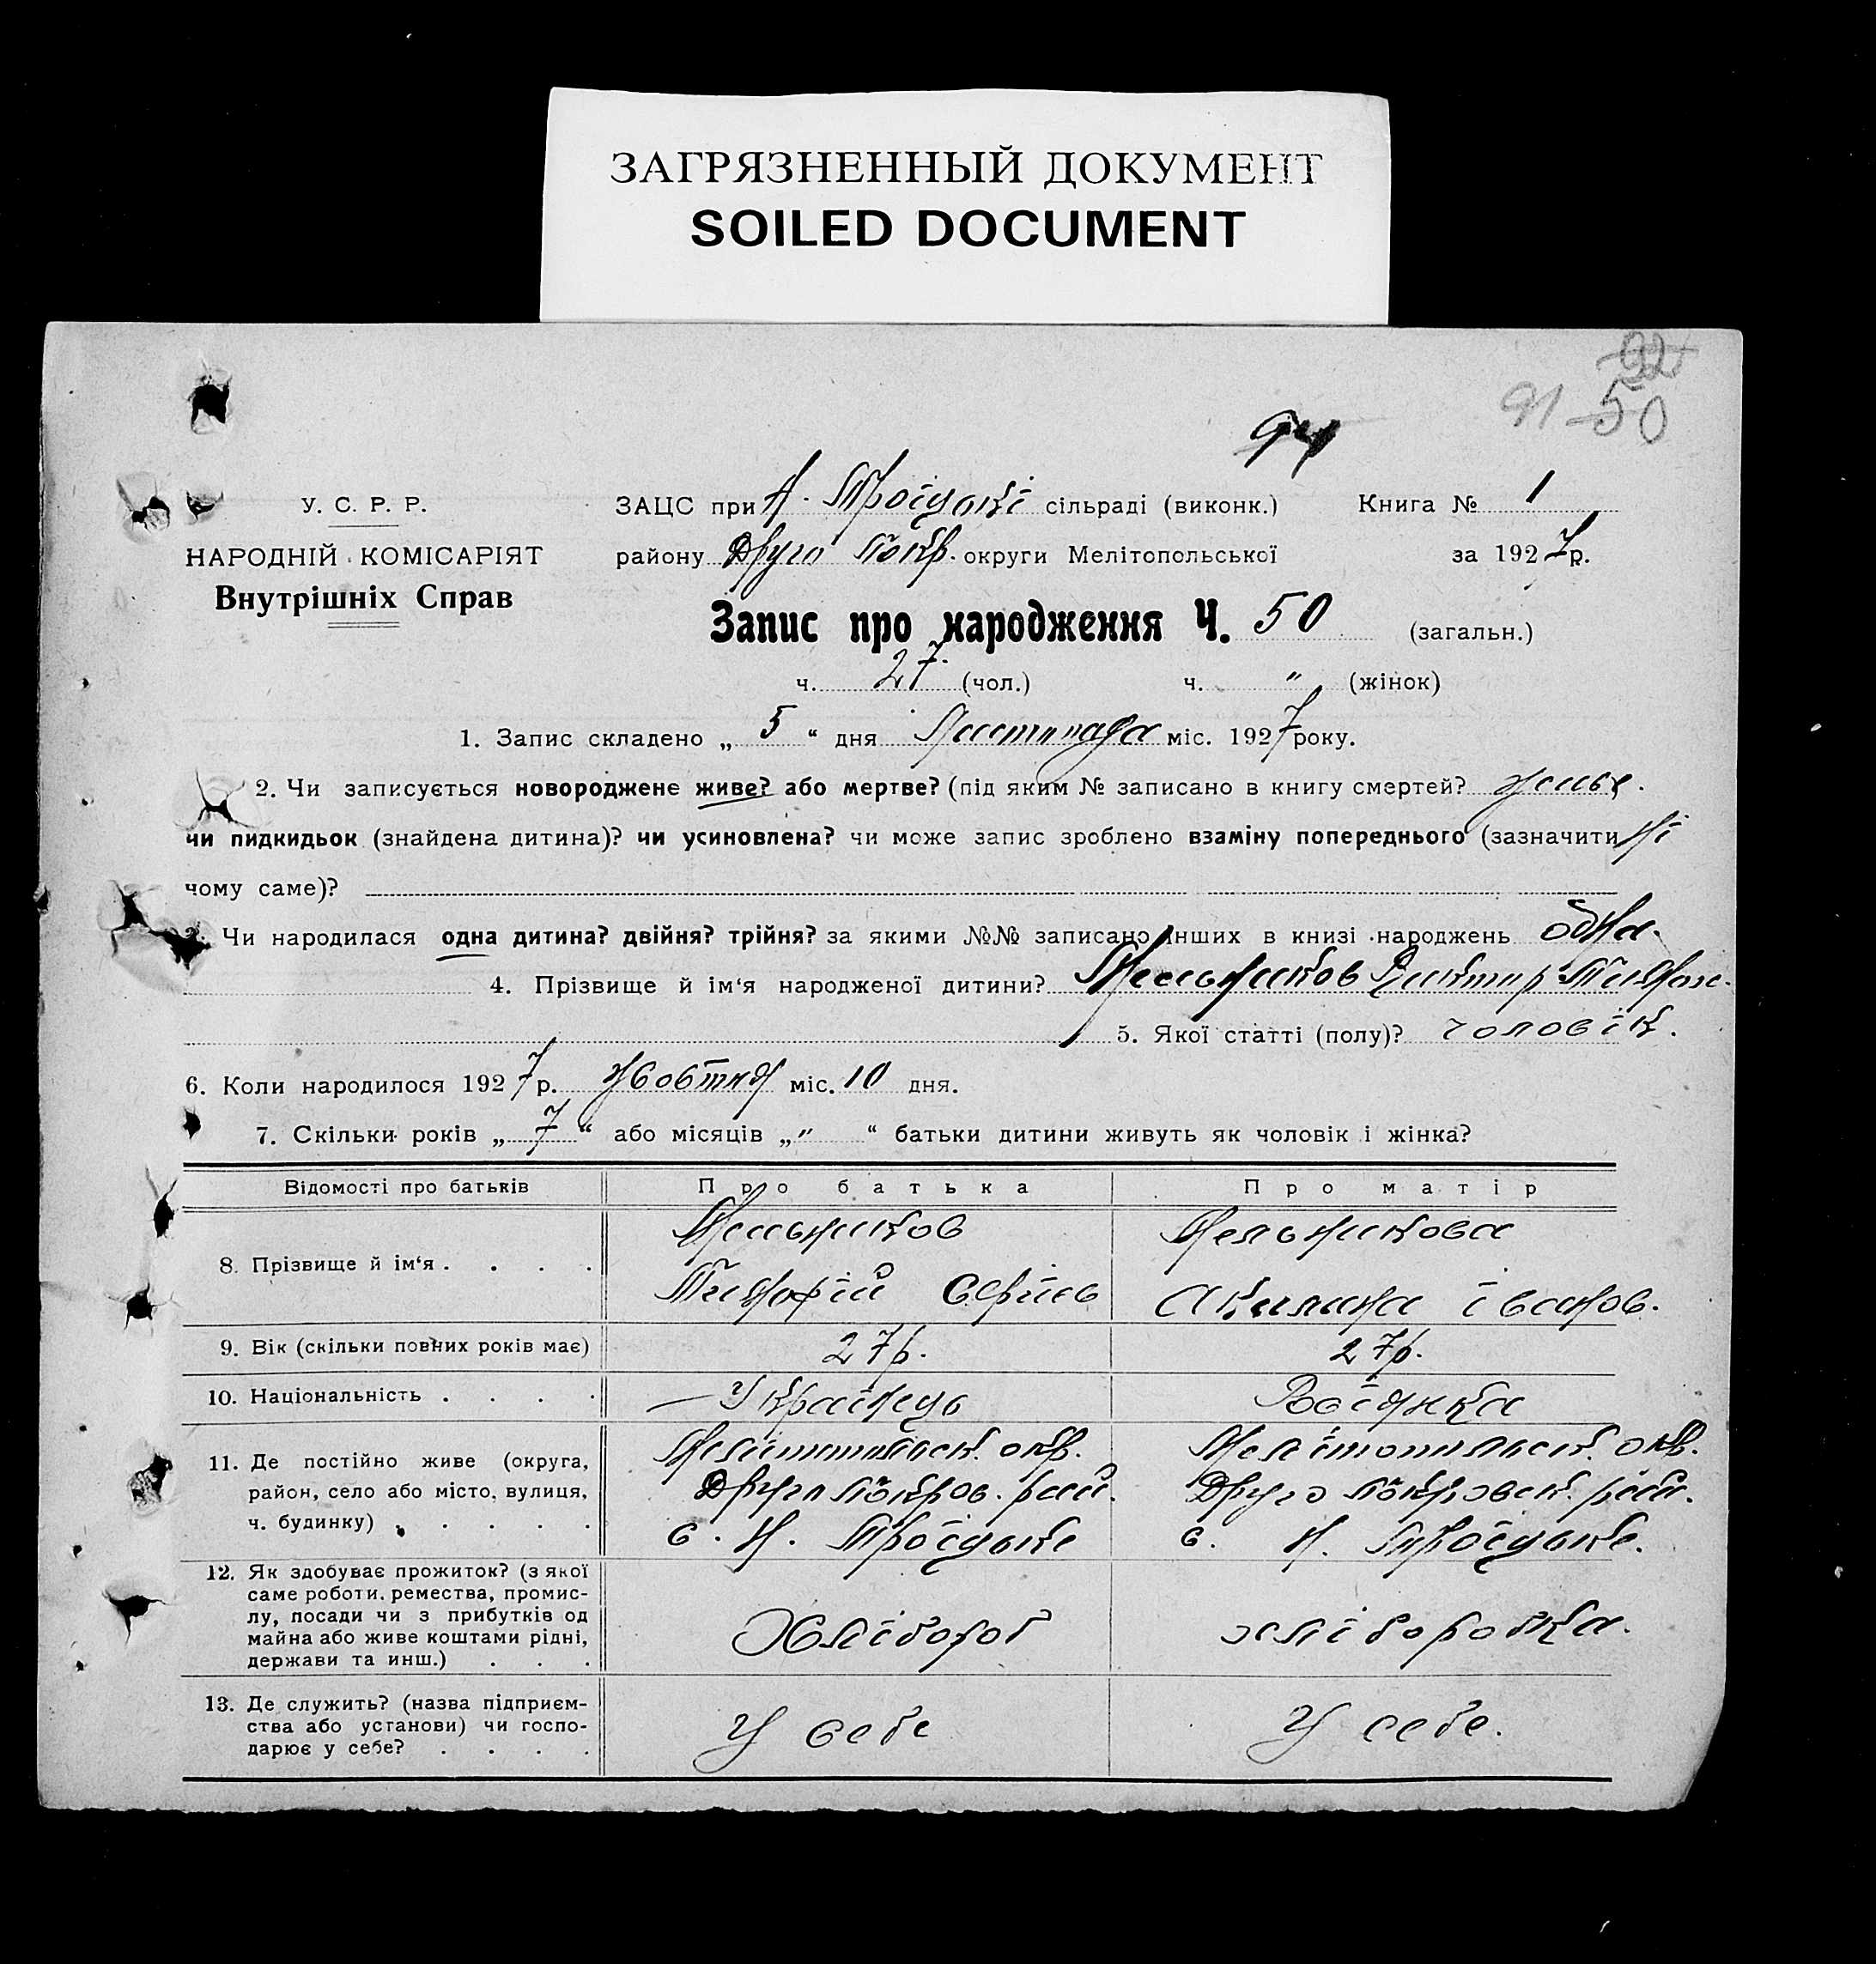 ЗАГРЯЗНЕННЫЙ ДОКУМЕНТ
SOILED DOCUMENT
92
91 50
94
У. С. Р. Р.
НАРОДНІЙ КОМІСАРІЯТ
Внутрішніх Справ
ЗАЦС при Н. Троїцькі сільраді (виконк.) Книга № 1
району Друго Покр. округи Мелітопольської за 1927 р.
Запис про народження Ч. 50 (загальн.)
ч. 27 (чол.) ч. " (жінок)
1. Запис складено „ 5 “ дня Листопада міс. 1927 року.
2. Чи записується новороджене живе? або мертве? (під яким № записано в книгу смертей? живе.
чи пидкидьок (знайдена дитина)? чи усиновлена? чи може запис зроблено взаміну попереднього (зазначити Ні
чому саме)?
3. Чи народилася одна дитина? двійня? трійня? за якими №№ записано інших в книзі народжень одна.
4. Прізвище й ім‘я народженої дитини? Мельников Виктор
5. Якої статті (полу)? чоловік.
6. Коли народилося 1927 р. жовтня міс. 10 дня.
7. Скільки років „ 7 “ або місяців „ " “ батьки дитини живуть як чоловік і жінка?
Відомості про батьків Про батька Про матір
8. Прізвище й ім‘я . . . . Мельников Мельникова
Акилина Іванов.
9. Вік (скільки повних років має) 27 р. 27 р.
10. Національність . . . . Українець Росіянка
11. Де постійно живе (округа, Мелітопольськ. окр. Мелітопольськ. окр.
район, село або місто, вулиця, Друго Покров. рай. Друго Покровськ. рай.
ч. будинку) . . . . . с. Н. Троїцьке с. Н. Троїцьке.
12. Як здобуває прожиток? (з якої
саме роботи, ремества, промис-
лу, посади чи з прибутків од Хлібороб хліборобка.
майна або живе коштами рідні,
держави та инш.) . . .
13. Де служить? (назва підприєм-
ства або установи) чи госпо- У себе У себе.
дарює у себе? . . . .